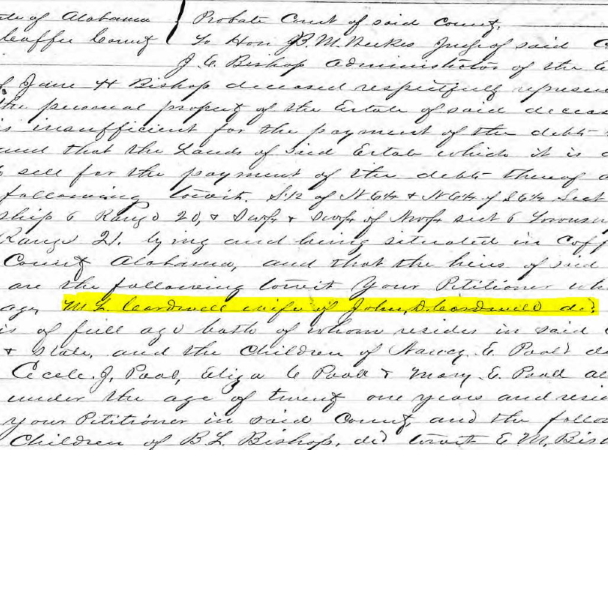 of Alabama Probate Court of said County,
Coaffee County To Hon J.B.M. Judge of said
J. C. Bishop Administrator of the
Jane H Bishop deceased respectfully
the personal property of the Estate of said
is insufficient for the payment of the debts
and that the Lands of said Estate which it is
sell for the payment of the debts thereof
following towit. S1/2 of N.W.1/4 & of Sect
ship 6 Range 20, & & of sect 6
Range 21. lying and being situated in
County Alabama, and that the heirs of said
are the following towit Your Petitioner
age, M. L. Cardwell wife of John, D. Cardwell
is of full age both of whom resides in said
& State, and the Children of Nancy. E. Pool
Cecele. J. Pool, Eliza C Pool & Mary. E. Pool
under the age of twenty one years and
your Petitioner in said County and the
Children of B. L. Bishop. towit E. M.